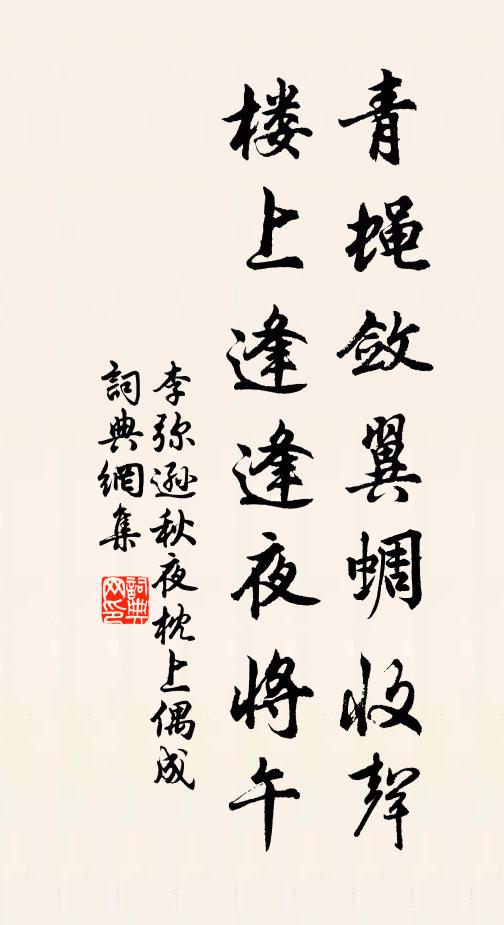 青蝇敛翼蜩收聲
楼上逢逢夜将午
李弥遜秋夜枕上偶成
詞典網集
詞典网印